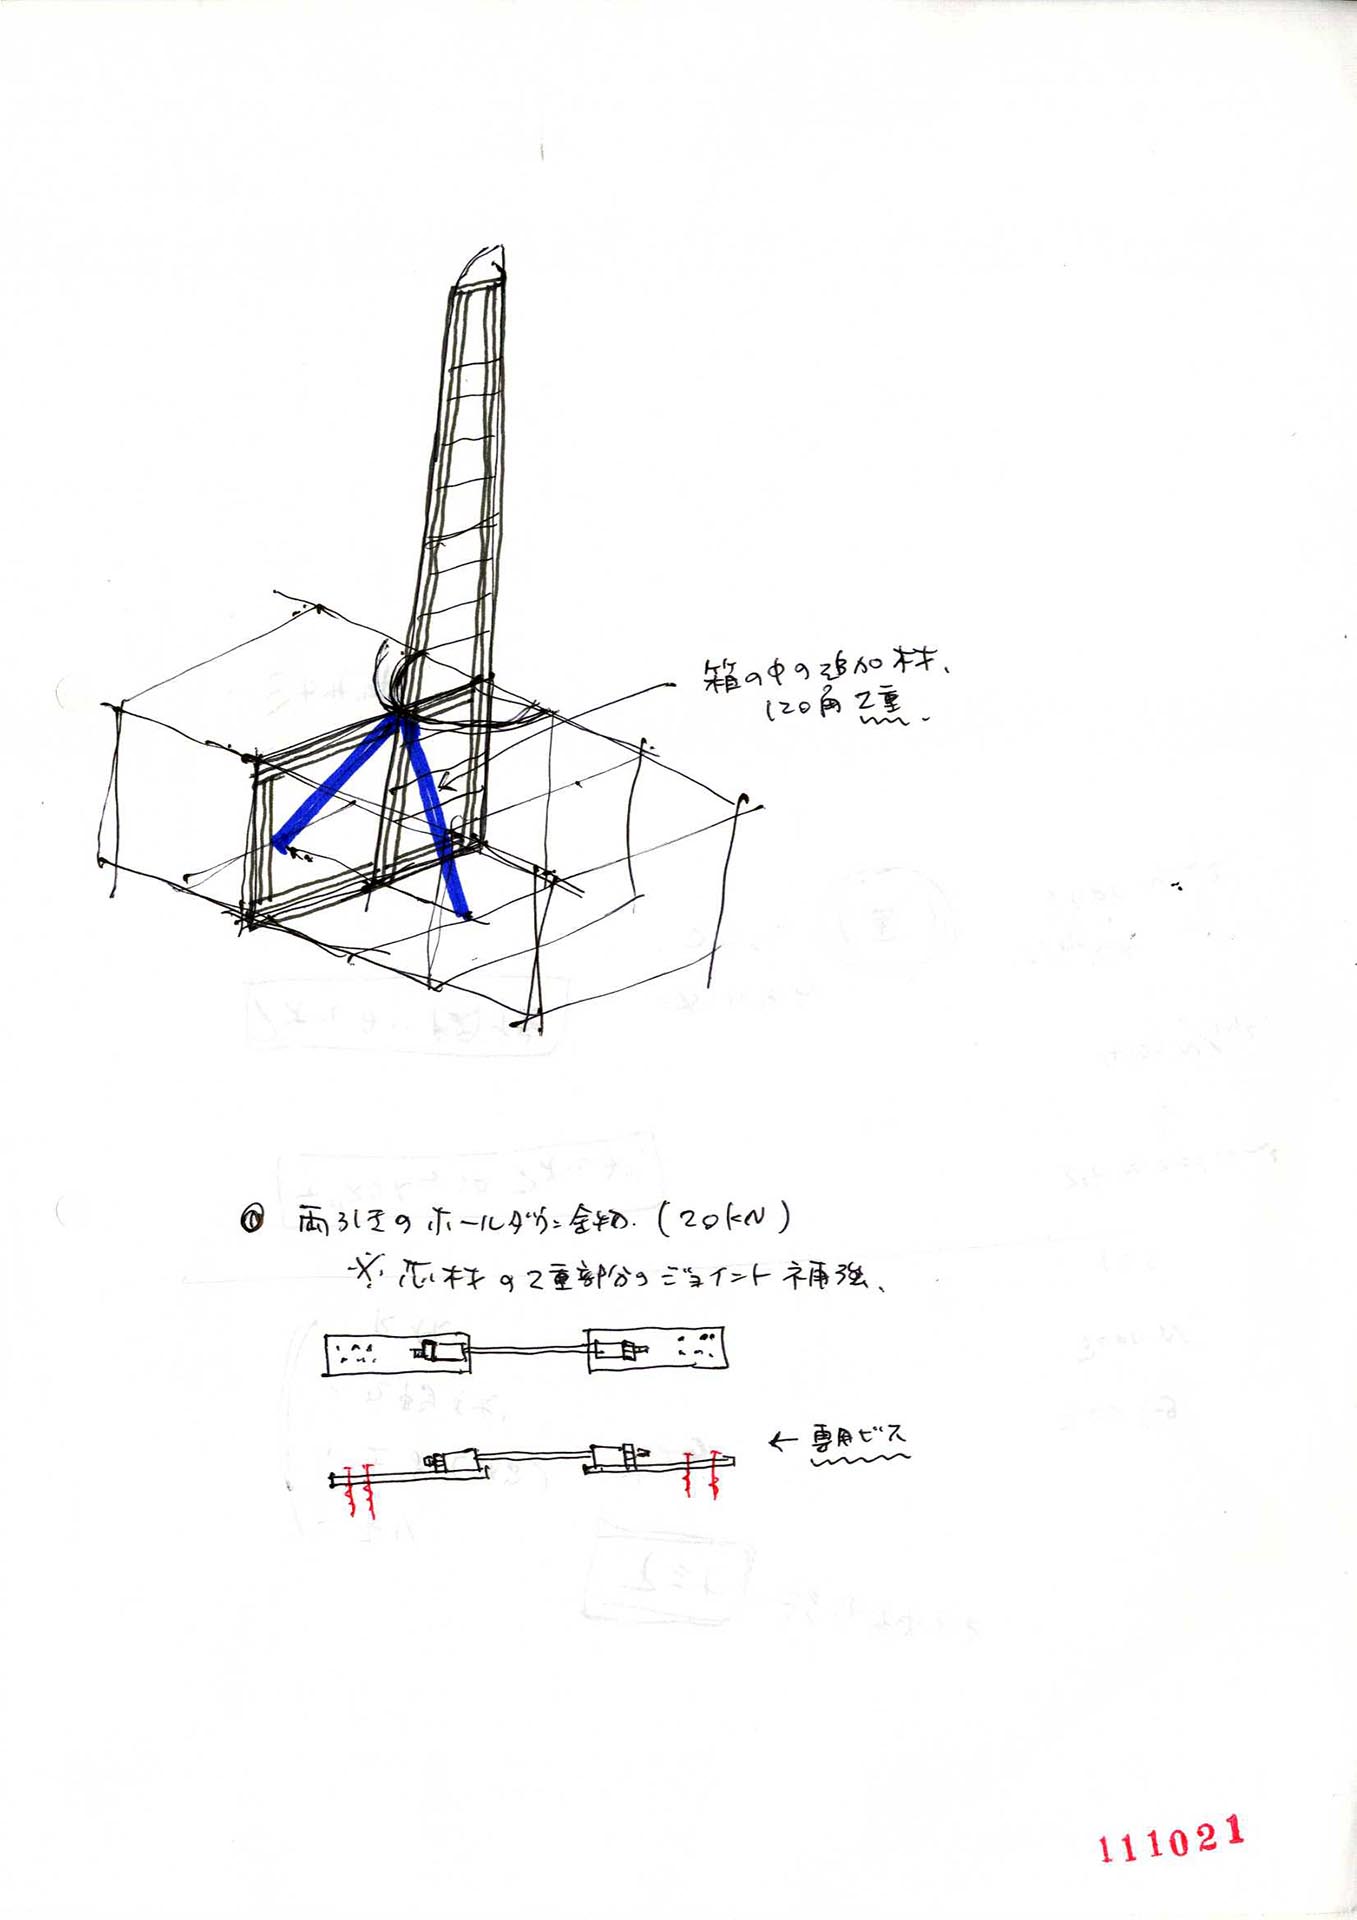 箱の中の追加材、
120角2重.
◎ 両引きのホールダウン金物.(20kN)
※ 芯材の2重部分のジョイント補強、
← 専用ビス
111021